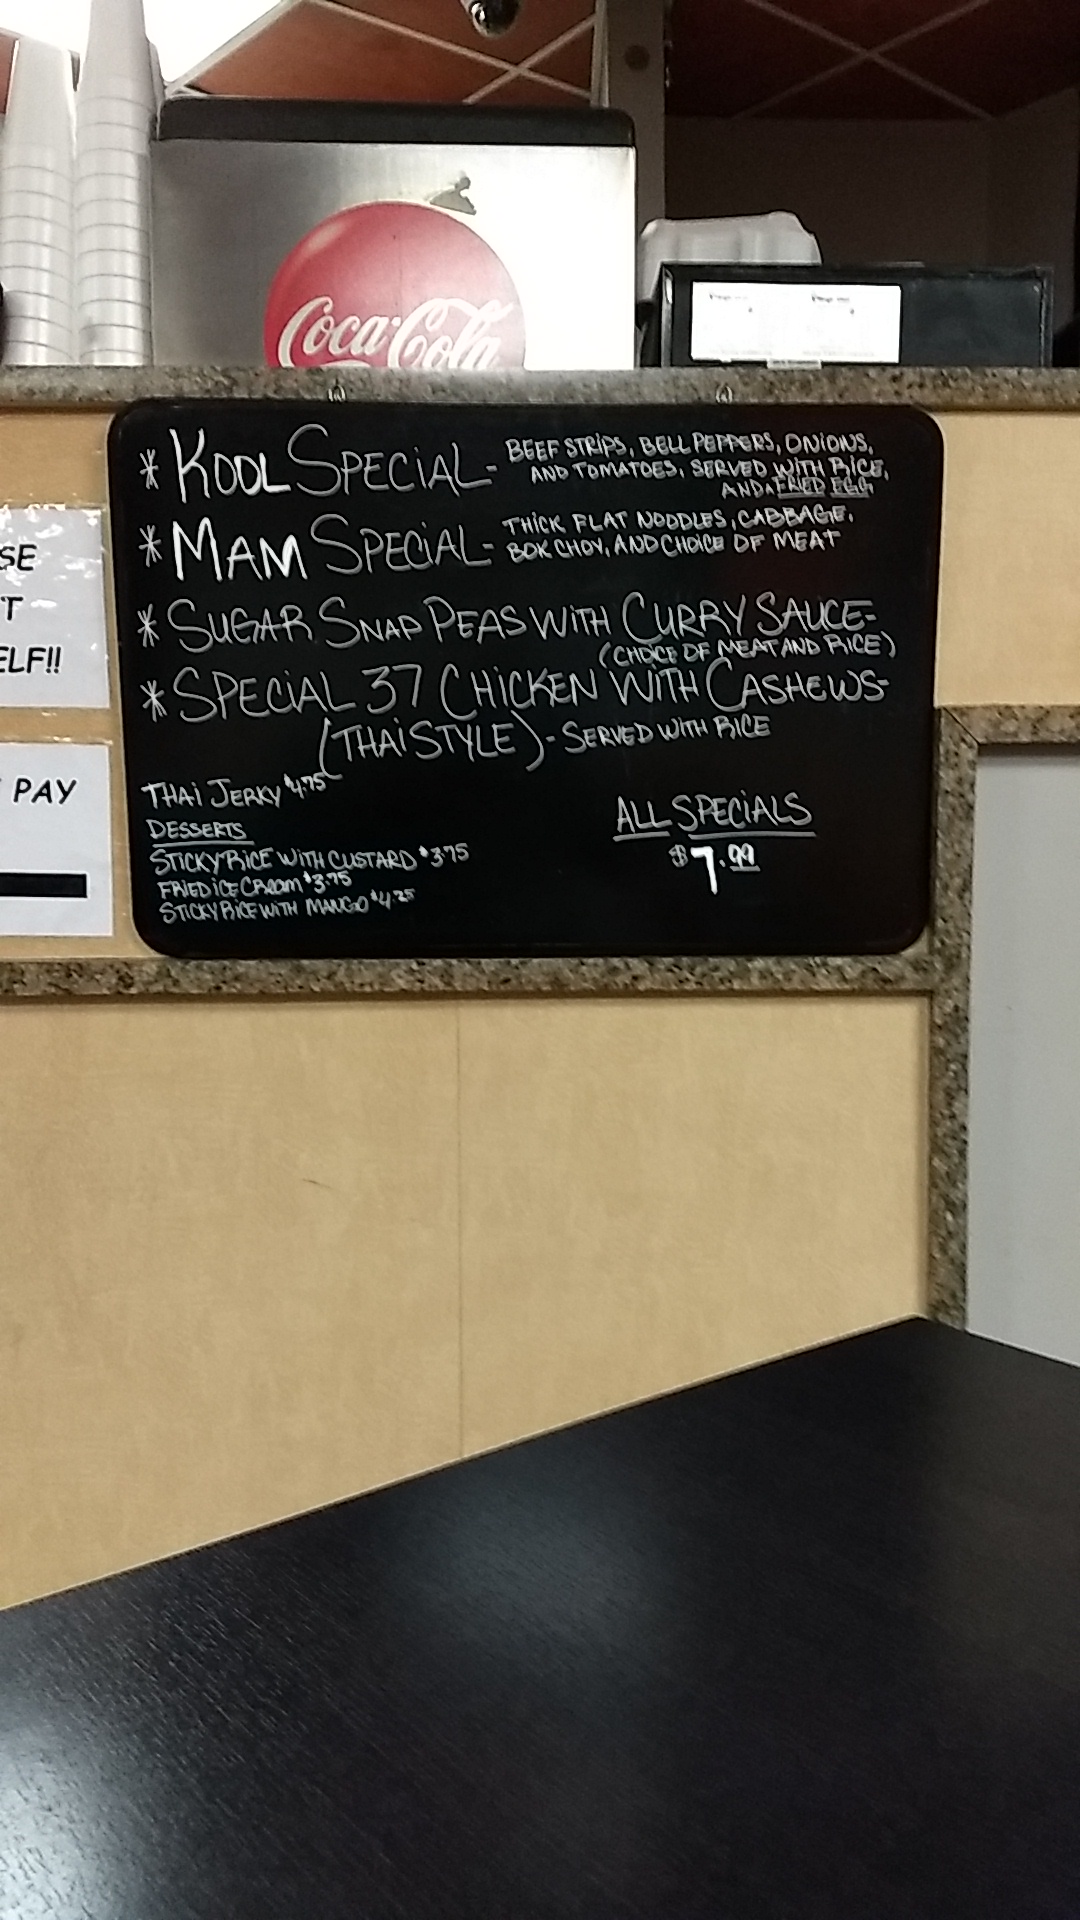 Coca-Cola
* KOOL SPECIAL - BEEF STRIPS, BELL PEPPERS, ONIONS,
AND TOMATOES, SERVED WITH RICE,
AND A FRIED EGG
* MAM SPECIAL - THICK FLAT NOODLES, CABBAGE,
BOK CHOY, AND CHOICE OF MEAT
* SUGAR SNAP PEAS WITH CURRY SAUCE -
(CHOICE OF MEAT AND RICE)
* SPECIAL 37 CHICKEN WITH CASHEWS -
(THAI STYLE) - SERVED WITH RICE
THAI JERKY $4.75
DESSERTS
STICKY RICE WITH CUSTARD $3.75
FRIED ICE CREAM $3.75
STICKY RICE WITH MANGO $4.25
ALL SPECIALS
$7.99
SE
T
ELF!!
PAY